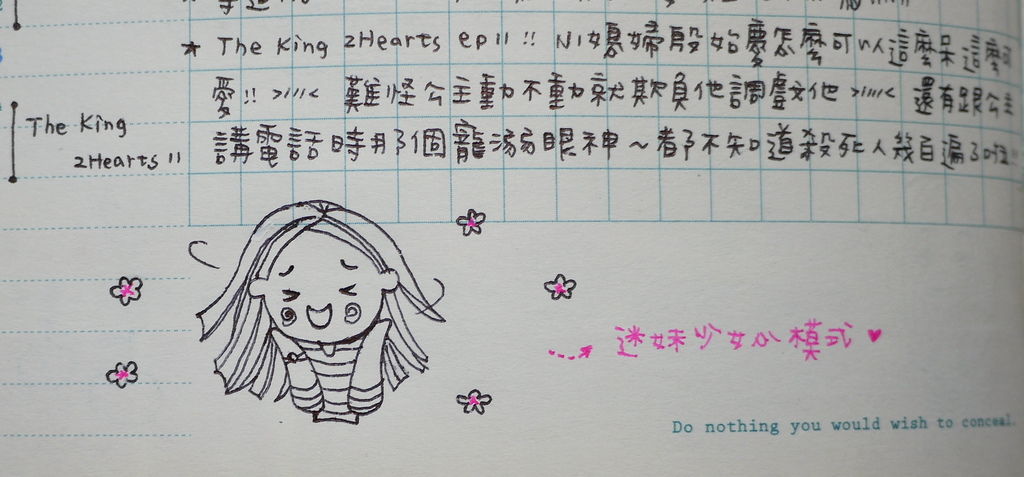 ★ The King 2Hearts ep11 !! N1媳婦殷始慶怎麼可以這麼呆這麼可
愛 !! >/////< 難怪公主動不動就欺負他調戲他 >/////< 還有跟公主
The King
2Hearts !!
講電話時那個寵溺眼神～都不知道殺死人幾百遍了啦!!
迷妹少女心模式 ♥
Do nothing you would wish to conceal.